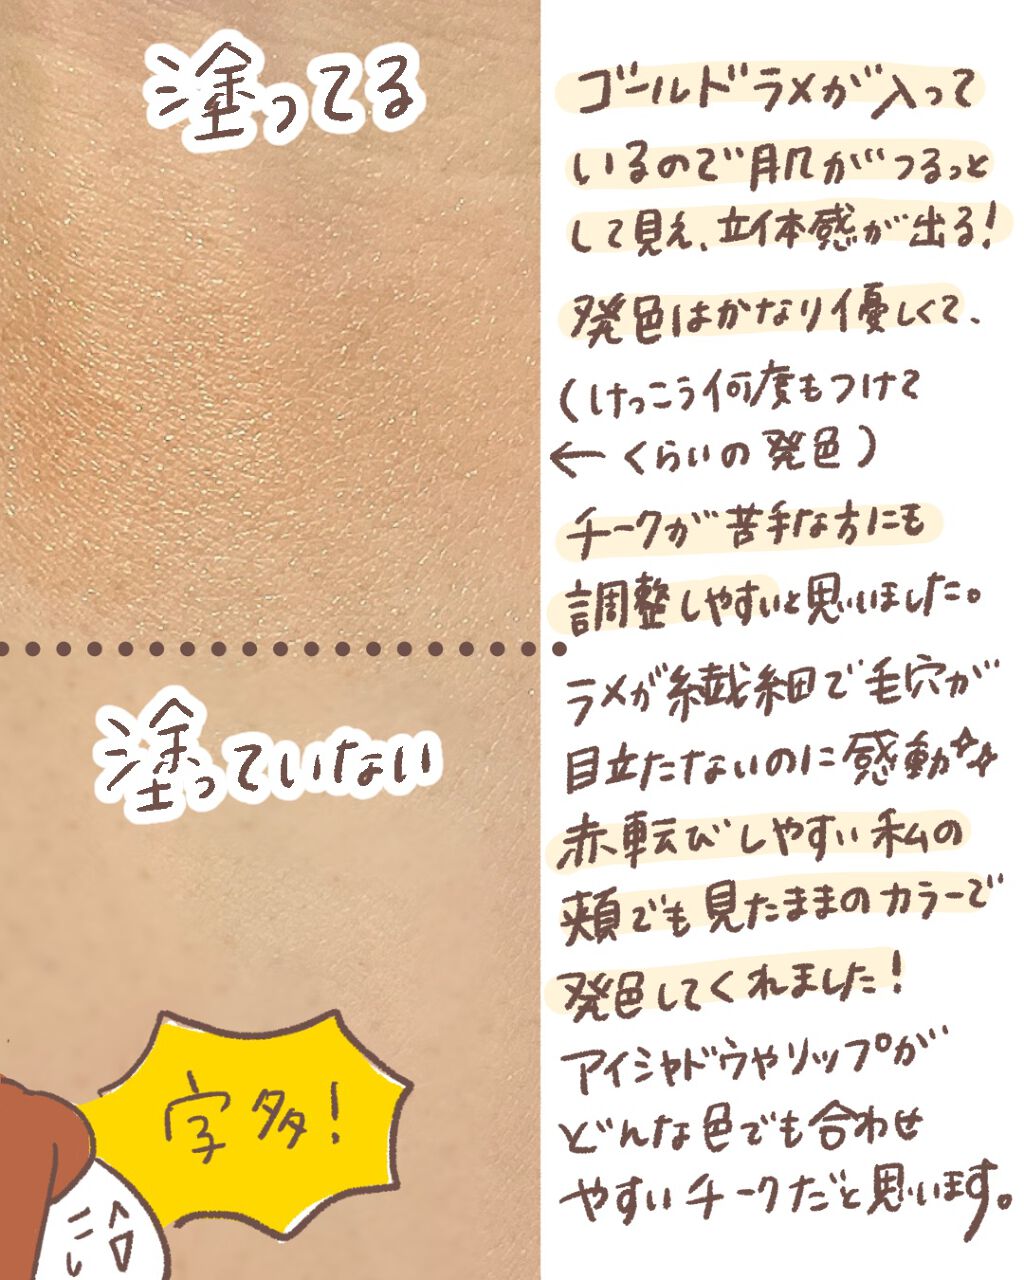 塗ってる
ゴールドラメが入って
いるので肌がつるっと
して見え、立体感が出る!
発色はかなり優しくて、
(けっこう何度もつけて
←くらいの発色)
チークが苦手な方にも
調整しやすいと思いました。
ラメが繊細で毛穴が
目立たないのに感動✨
赤転びしやすい私の
頬でも見たままのカラーで
発色してくれました!
アイシャドウやリップが
どんな色でも合わせ
やすいチークだと思います。
塗っていない
字多!